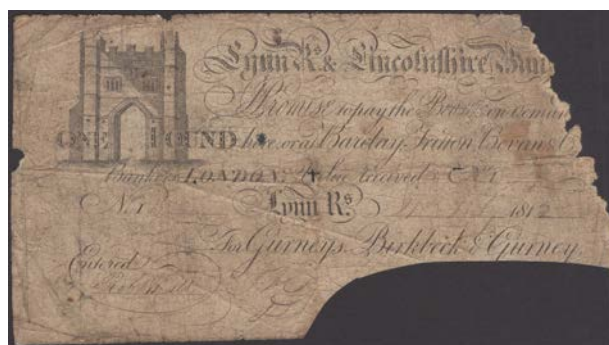 Lynn Rs. & Lincolnshire Ban
I Promise to pay the Bearer on deman
ONE POUND here or at Barclay, Tritton, Bevan & C
Bankers LONDON Value received
No. Lynn Rs. 1812
For Gurneys, Birkbeck & Gurney.
Entered